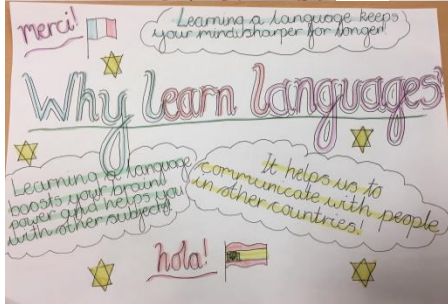 merci!
Learning a language keeps
your mind sharper for longer!
Why learn languages
Learning a language
boosts your brain
power and helps you
with other subjects!
It helps us to
communicate with people
in other countries!
hola!